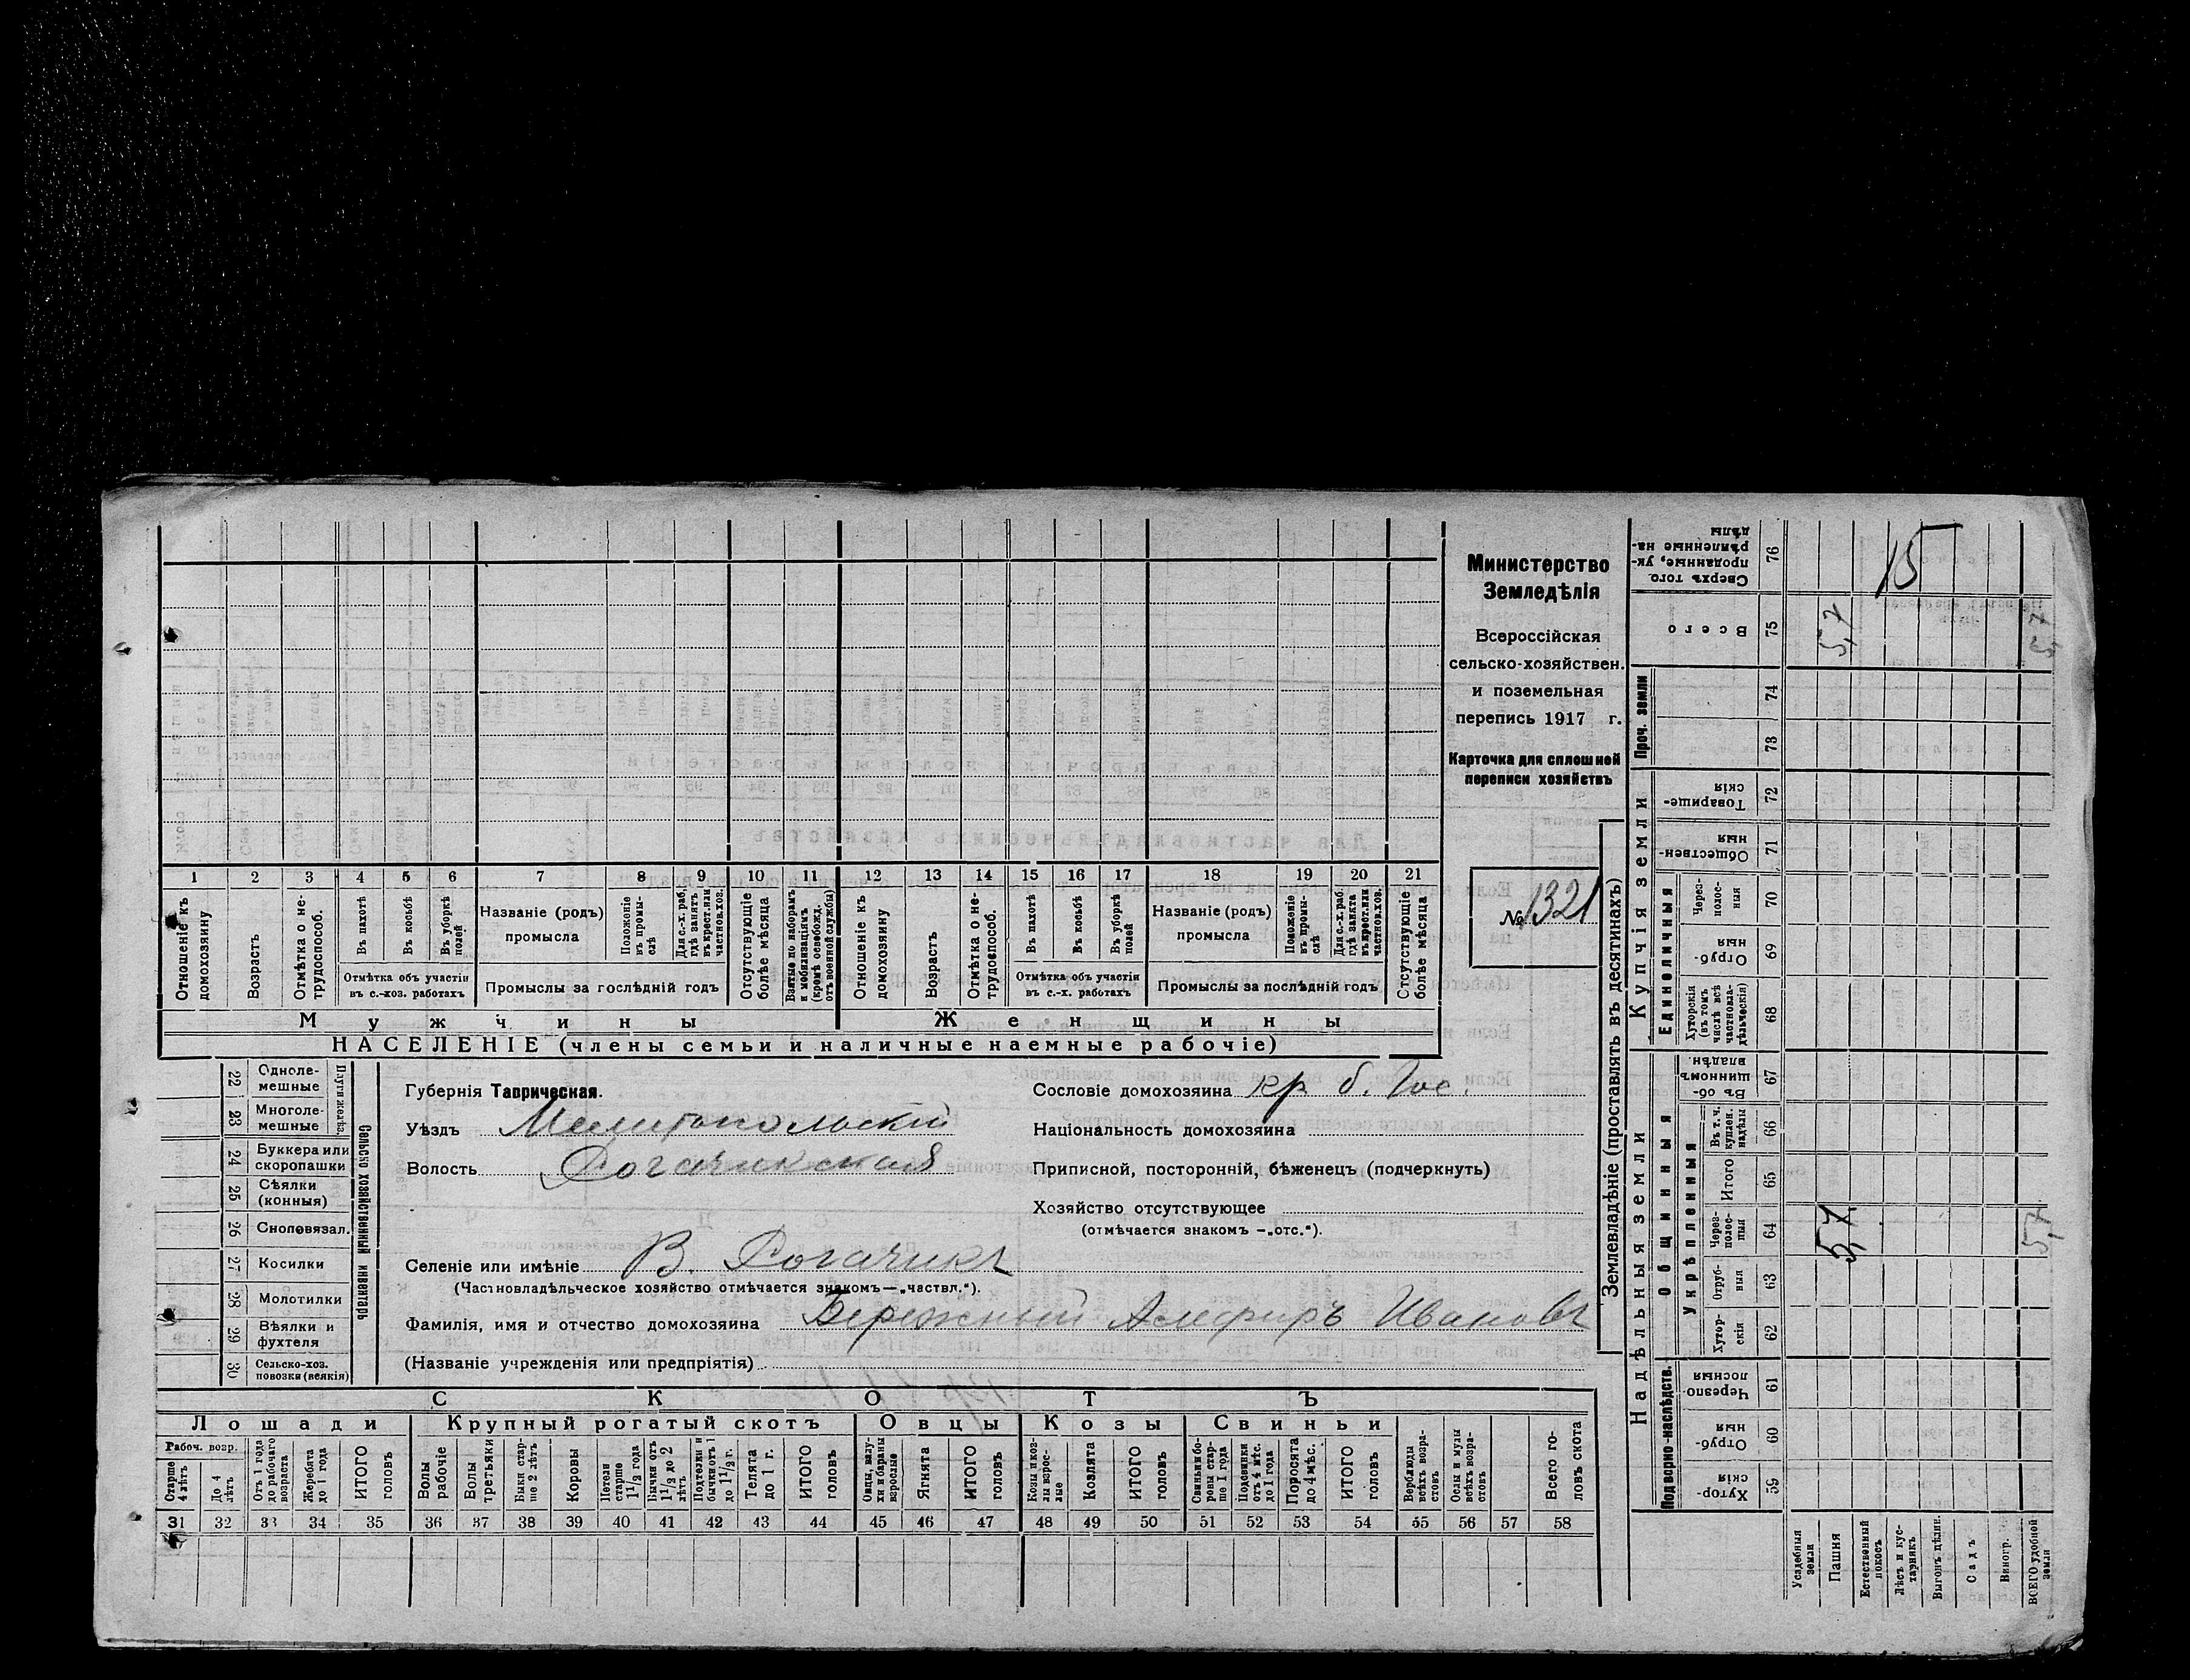 Министерство
Земледѣлія
Всероссійская
сельско-хозяйствен.
и поземельная
перепись 1917 г.
Карточка для сплошной
переписи хозяйствъ
№ 1321
1 2 3 4 5 6 7 8 9 10 11 12 13 14 15 16 17 18 19 20 21
Отношеніе къ домохозяину
Возрастъ
Отмѣтка о не-трудоспособ.
Въ пахотѣ
Въ косьбѣ
Въ уборкѣ полей
Отмѣтка объ участіи
въ с.-хоз. работахъ
Названіе (родъ)
промысла
Положеніе въ промы-слѣ
Для с.-х. раб. гдѣ занятъ въ крест. или частнов. хоз.
Промыслы за послѣдній годъ
Отсутствующіе болѣе мѣсяца
Взятые по наборамъ и мобилизаціямъ (кромѣ освобожд. отъ военной службы)
Отношеніе къ домохозяину
Возрастъ
Отмѣтка о не-трудоспособ.
Въ пахотѣ
Въ косьбѣ
Въ уборкѣ полей
Отмѣтка объ участіи
въ с.-х. работахъ
Названіе (родъ)
промысла
Положеніе въ промы-слѣ
Для с.-х. раб. гдѣ занята въ крест. или частнов. хоз.
Промыслы за послѣдній годъ
Отсутствующіе болѣе мѣсяца
Мужчины
Женщины
НАСЕЛЕНІЕ (члены семьи и наличные наемные рабочіе)
22 Однолемешные
23 Многолемешные
Плуги желѣз.
24 Буккера или скоропашки
25 Сѣялки (конныя)
26 Сноповязал.
27 Косилки
28 Молотилки
29 Вѣялки и фухтеля
30 Сельско-хоз. повозки (всякія)
Сельско хозяйственный инвентарь
Губернія Таврическая.
Уѣздъ Мелитопольскій
Волость Рогачикская
Селеніе или имѣніе В. Рогачикъ
(Частновладѣльческое хозяйство отмѣчается знакомъ—„частвл.“).
Фамилія, имя и отчество домохозяина Бережный Алефиръ Ивановъ
(Названіе учрежденія или предпріятія)
Сословіе домохозяина кр. б. Гос.
Національность домохозяина
Приписной, посторонній, бѣженецъ (подчеркнуть)
Хозяйство отсутствующее
(отмѣчается знакомъ —„отс.“).
СКОТЪ
Лошади Крупный рогатый скотъ Овцы Козы Свиньи
Рабоч. возр.
Старше 4 лѣтъ
До 4 лѣтъ
Отъ 1 года до рабочаго возраста
Жеребята до 1 года
ИТОГО головъ
Волы рабочіе
Волы третьяки
Быки стар-ше 2 лѣтъ
Коровы
Нетели старше 1 1/2 года
Бычки отъ 1 1/2 до 2 лѣтъ
Подтелки и бычки отъ 1 до 1 1/2 г.
Телята до 1 г.
ИТОГО головъ
Овцы, валу-хи и бараны взрослые
Ягнята
ИТОГО головъ
Козы и коз-лы взрос-лые
Козлята
ИТОГО головъ
Свиньи и бо-ровы стар-ше 1 года
Подсвинки отъ 4 мѣс. до 1 года
Поросята до 4 мѣс.
ИТОГО головъ
Верблюды всѣхъ возра-стовъ
Ослы и мулы всѣхъ возра-стовъ
Всего го-ловъ скота
31 32 33 34 35 36 37 38 39 40 41 42 43 44 45 46 47 48 49 50 51 52 53 54 55 56 57 58
Землевладѣніе (проставлять въ десятинахъ)
Сверхъ того проданные, ук-рѣпленные на-дѣлы 76
15
Всего 75 5,7 5,7
Проч. земли 74 73
Купчія земли
Товарище-скія 72
Обществен-ныя 71
Единоличныя
Через-полос-ныя 70
Отруб-ныя 69
Хуторскія (въ томъ числѣ всѣ частновла-дѣльческія) 68
Надѣльныя земли
Общинныя
Въ об-щинномъ владѣн. 67
Укрѣпленныя
Въ т. ч. куплен. надѣлы 66
Итого 65
Через-полос-ныя 64 5,7 5,7
Отруб-ныя 63
Хутор-скія 62
Подворно-наслѣдств.
Черезпо-лосныя 61
Отруб-ныя 60
Хутор-скія 59
Усадебныя земли
Пашня
Естественный покосъ
Лѣсъ и кус-тарникъ
Выгонъ дѣлим.
Садъ
Виногр.
ВСЕГО удобной земли